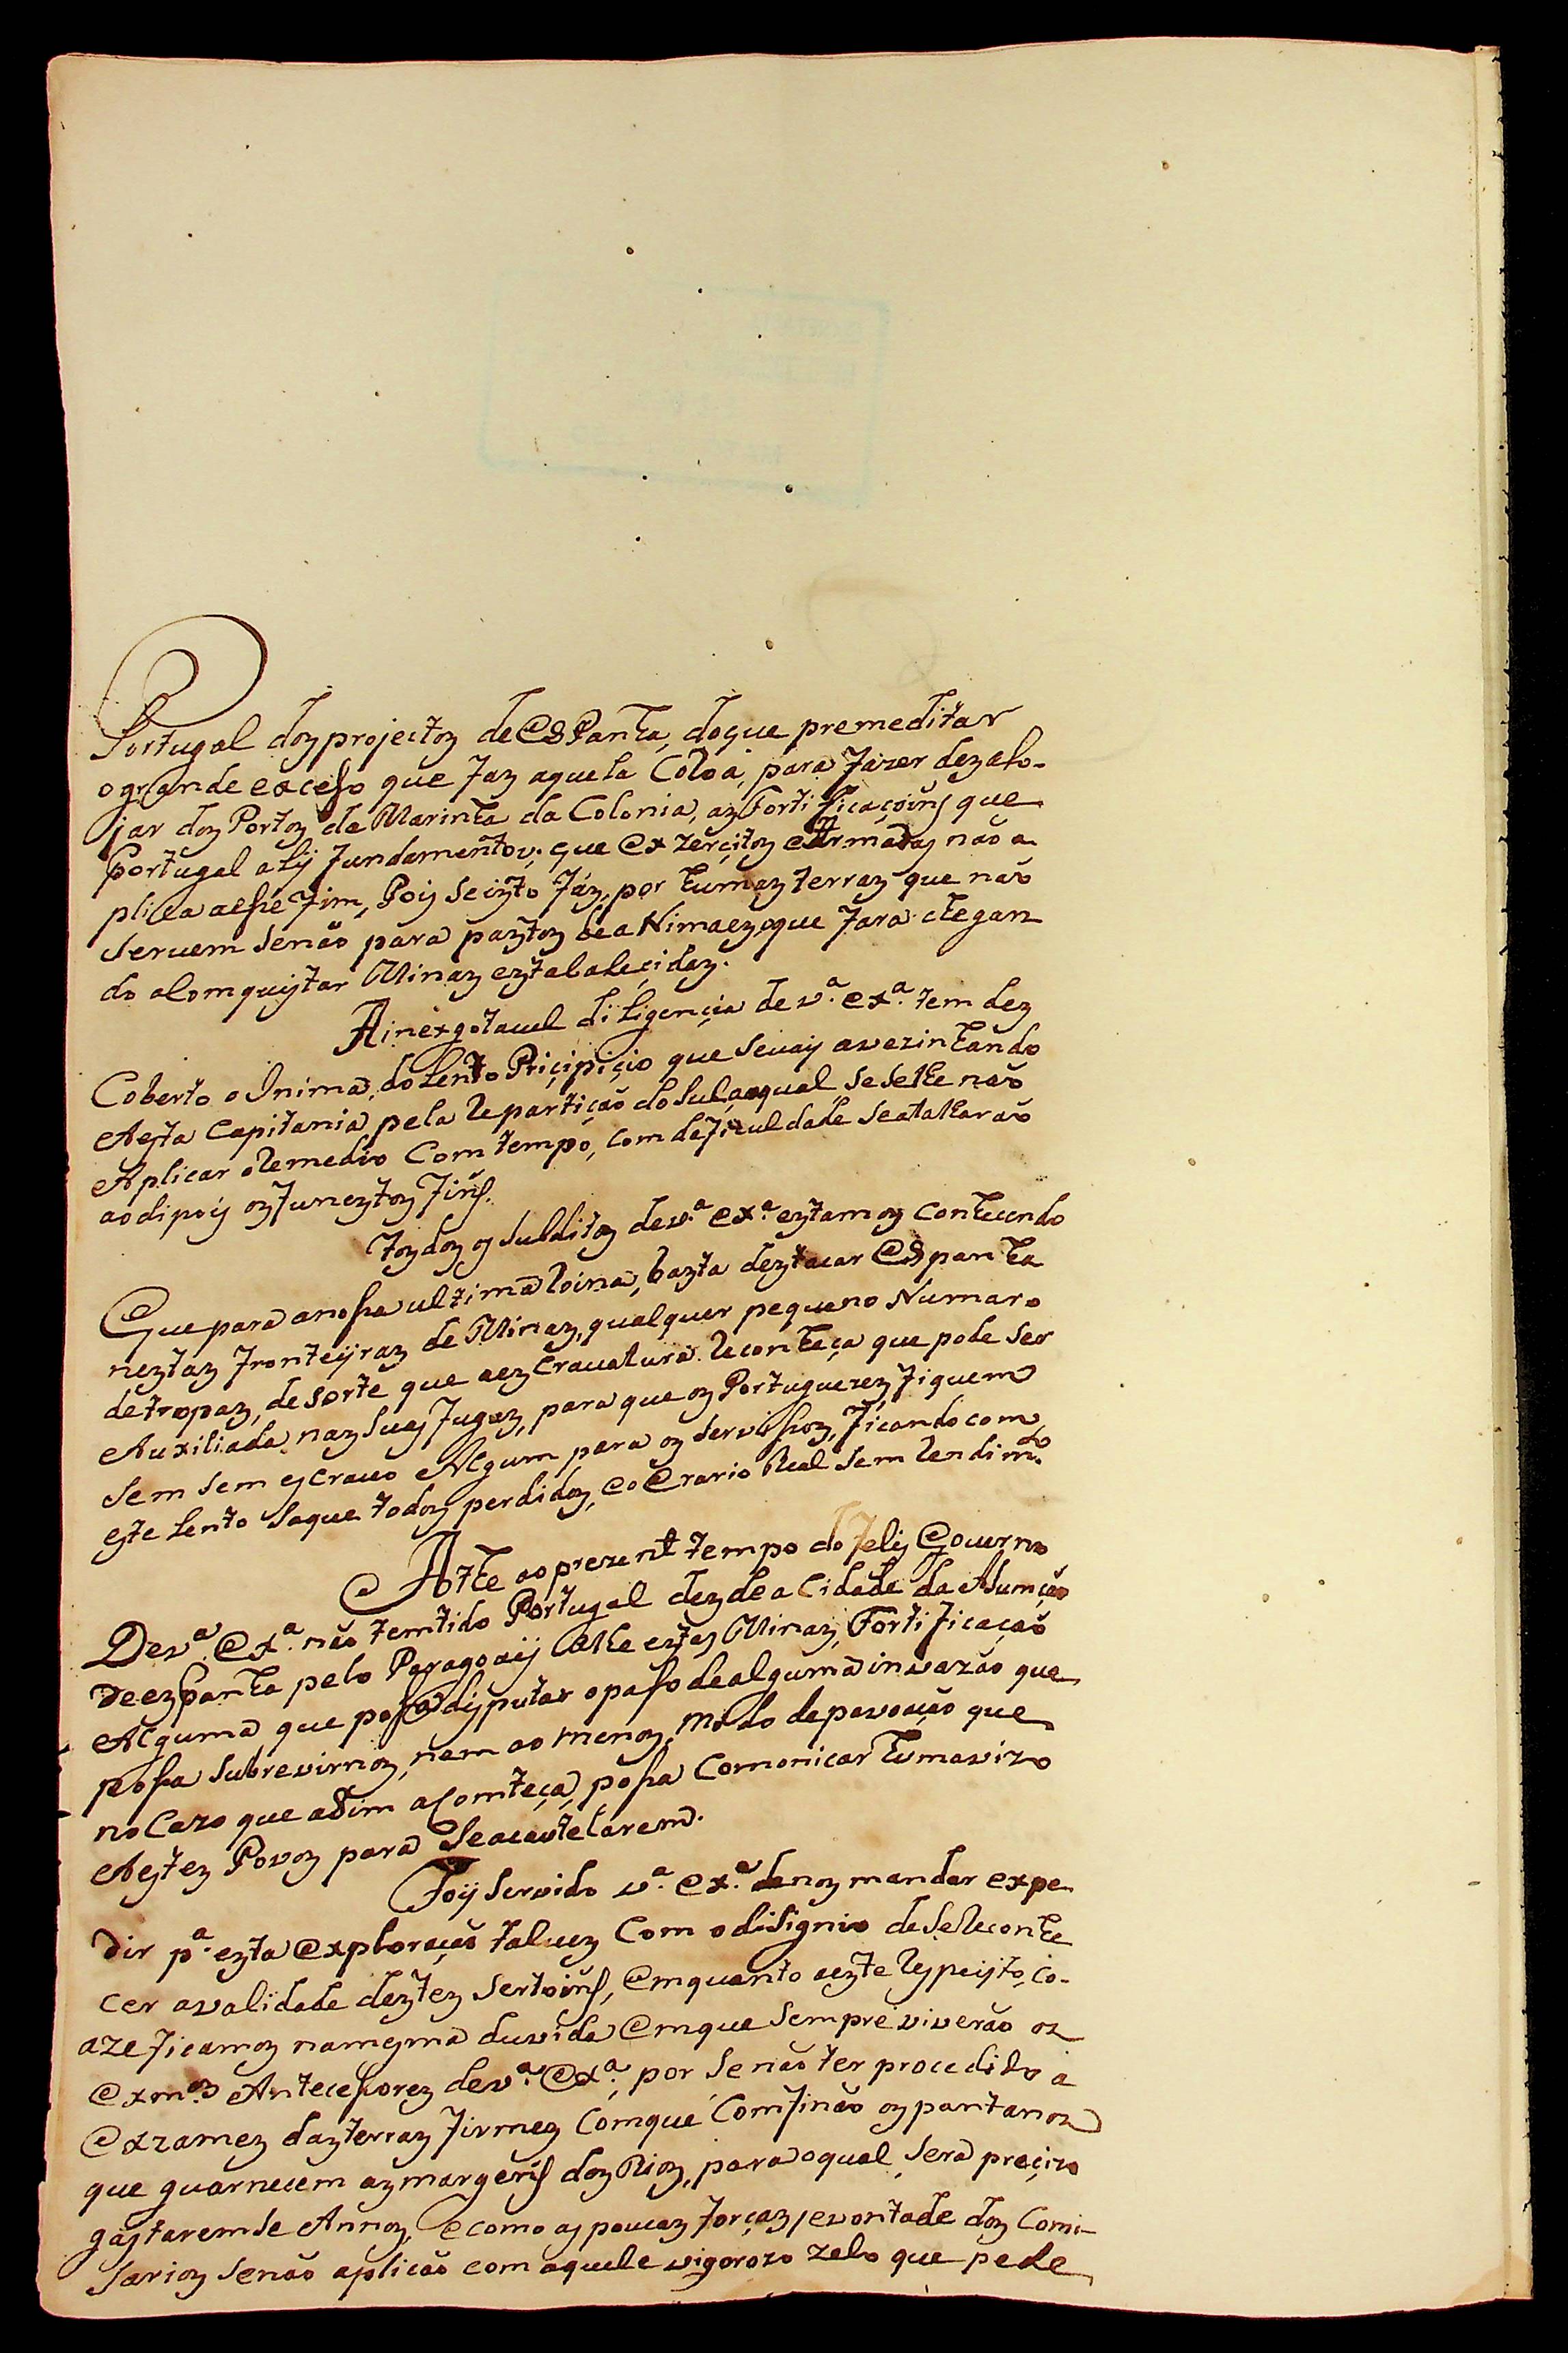 Portugal dos projectos de ESPanha, doque premeditar
o grande excesso que faz aquela Coroa, para fazer dezalo-
jar dos Portos da Marinha da Colonia, as Fortificaçoins que
Portugal alÿ fundamentou; que Exzercitos e Armadas não a-
plica aesse fim, Pois seisto fáz, por humas terras que não
servem senão para pastos de aNimaez, oque fara chegan-
do a Comquistar Minas estabalecidas.
A inexgotavel diligencia de v.ª Ex.ª tem des
Coberto o Inima, do Lento Pricipicio que sevay avezinhando
Aesta Capitania, pela Repartição do Sul, aoqual seselhe não
Aplicar o Remedio Com tempo, com deficuldade seatalharão
ao dipois os funestos fins.
Todos os subditos de v.ª Ex.ª estamos Conhecendo
Que para anossa ultima Roina, basta destacar ESpanha
nestas fronteÿras de Minas, qualquer pequeno Numaro
de tropas, de sorte que aescravatura Reconheça que pode ser
Auxiliada nas suas fugas, para que os Portuguezes fiquem
sem sem escravo Algum para os servissos, ficando com
este Lento saque todos perdidos, e o Erario Real sem Rendim.to
Athe ao prezente tempo do feliz Governo
De v.ª Ex.ª não temtido Portugal desde a Cidade da Asumção
De ezpanha pelo Paragoaÿ Athe estas Minas, Fortificação
Alguma, que possa disputar o passo dealguma invazão que
possa subrevirnos, nem ao menos, modo de povoação que
no Cazo que assim acomteça, possa Comonicar hum avizo
Aestes Povos para Seacautelarem.
Foÿ servido v.ª Ex.ª denos mandar expe-
dir p.ª esta Exploração talvez Com o disignio deseReconhe
cer a validade destes sertoins, Emquanto aeste Respeÿto, co-
aze ficamos namesma duvida Emque sempre viverão os
Exm.os Antecessores de v.ª Ex.ª, por se não ter procedido a
Exzames dasterras firmes Comque Comfinão os pantanos
que guarnecem as margens dos Rios, para oqual sera precizo
gastaremse Annos, e como as poucas forças, e vontade dos Comi-
sarios senão aplicão com aquele vigorozo zelo que pede